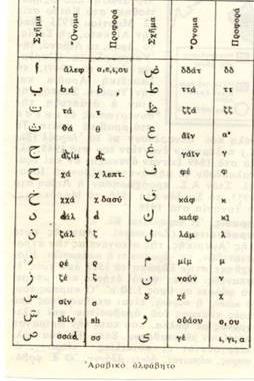 Σχῆμα Ὄνομα Προφορά Σχῆμα Ὄνομα Προφορά
ا ἄλεφ α,ε,ι,ου ض δδάτ δδ
ب bά b ط ττά ττ
ت τά τ ظ ζζά ζζ
ث θά θ ع ἄϊν α'
ج dζίμ dζ غ γάϊν γ
ح χά χ λεπτ. ف φέ φ
خ χχά χ δασύ ق κάφ κ
د dάλ d ك κιάφ κι
ذ ζάλ ζ ل λάμ λ
ر ρέ ρ م μίμ μ
ز ζέ ζ ن νούν ν
س σίν σ ه χέ χ
ش shίν sh و οὐάου ο, ου
ص σσάd σσ ي γέ ι, γι, α
Ἀραβικό ἀλφάβητο